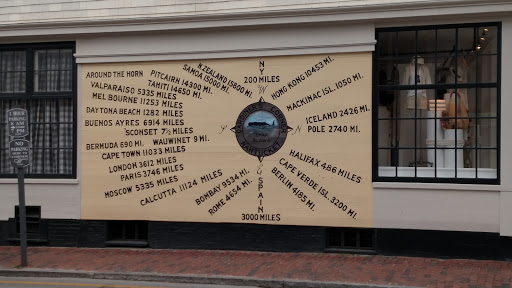 N.Y.
200 MILES
N. ZEALAND 15800 M.
SAMOA 15000 M.
TAHITI 14650 MI.
PITCAIRN 14300 M.
AROUND THE HORN
VALPARAISO 5335 MILES
MELBOURNE 11253 MILES
DAYTONA BEACH 1282 MILES
BUENOS AYRES 6914 MILES
'SCONSET 7½ MILES
BERMUDA 690 MI. WAUWINET 9 MI.
CAPE TOWN 11033 MILES
LONDON 3612 MILES
PARIS 3746 MILES
MOSCOW 5335 MILES
CALCUTTA 11124 MILES
BOMBAY 9534 MI.
ROME 4654 MI.
SPAIN
3000 MILES
HONG KONG 10453 MI.
MACKINAC ISL. 1050 MI.
ICELAND 2426 MI.
POLE 2740 MI.
HALIFAX 486 MILES
CAPE VERDE ISL. 3200 MI.
BERLIN 4185 MI.
1 HOUR
PARKING
NO
PARKING